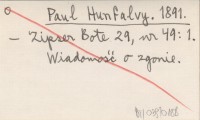 Paul Hunfalvy. 1891.
– Zipser Bote 29, nr 49: 1.
Wiadomość o zgonie.